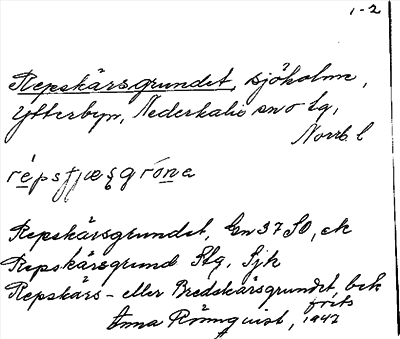 1-2
Repskärsgrundet, sjöholme,
Ytterbyn, Nederkalix sn o tg,
Norrb. l
répsʃæʂgrónₐ
Repskärsgrundet, Gn 37 SO, ek
Repskärsgrund Stg, Sjk
Repskärs- eller Bredskärsgrundet, bek
förts
Anna Rönnquist, 1947